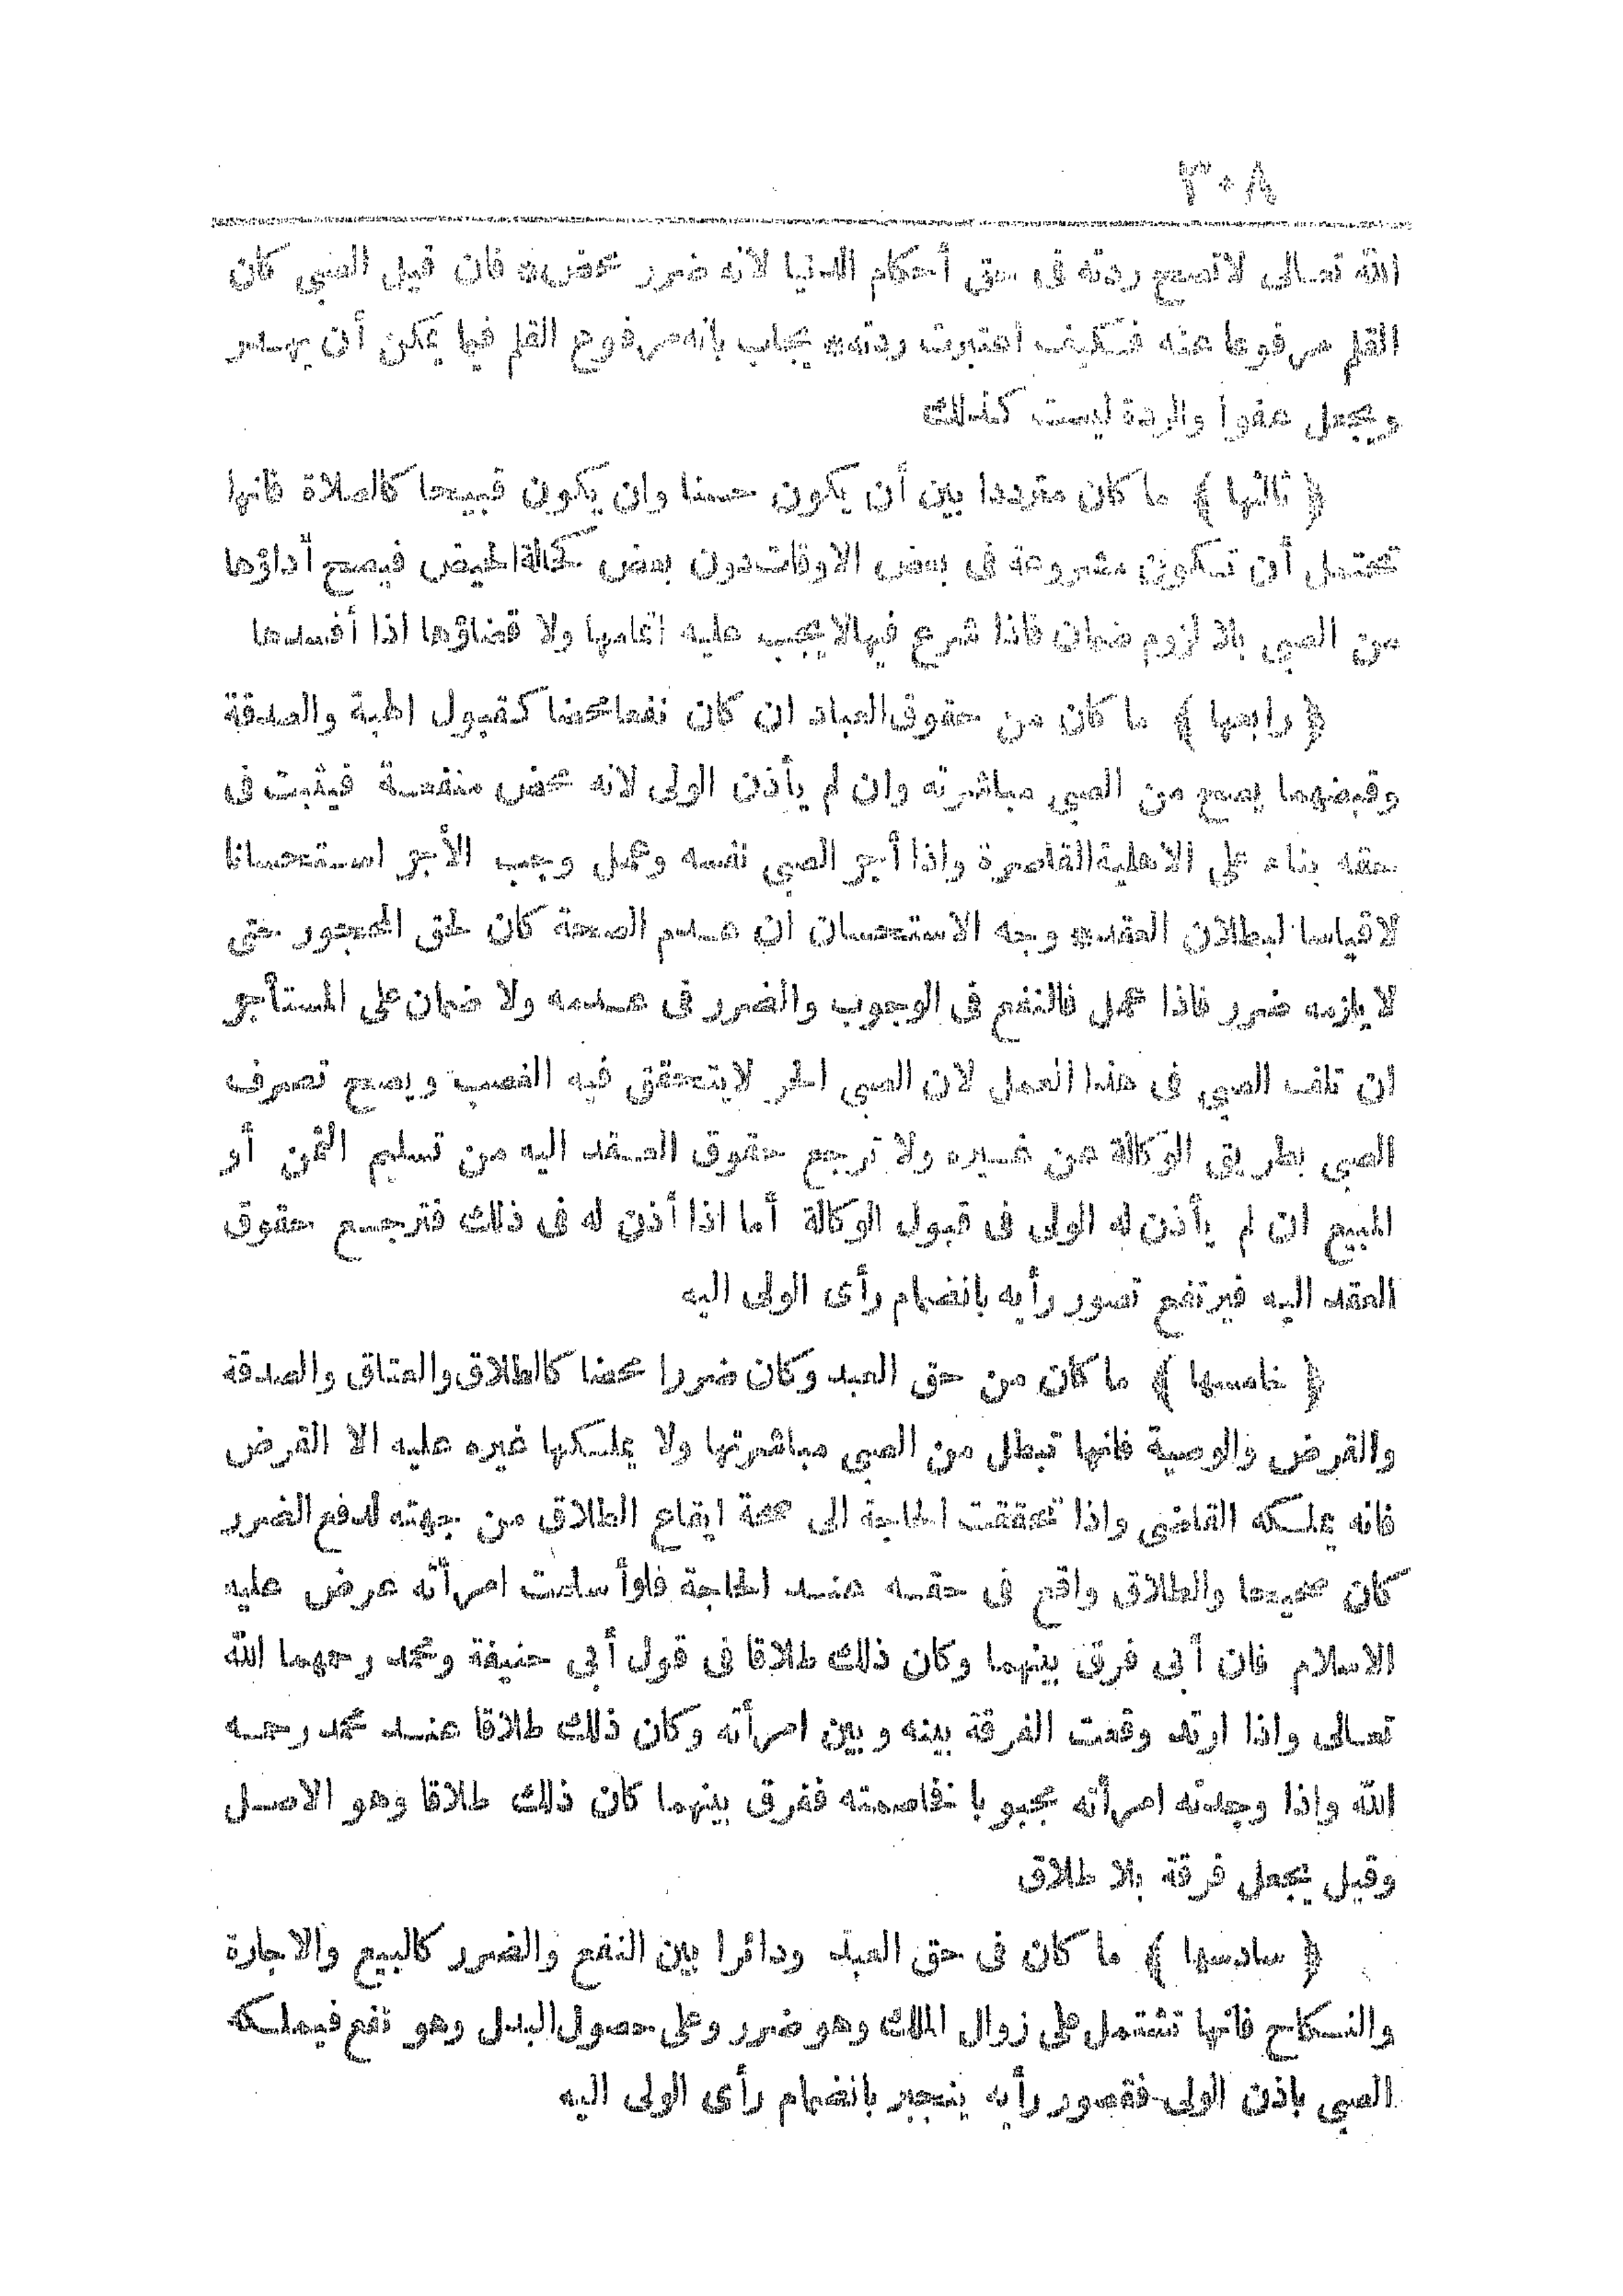 ٣٠٨
الله تعالى لاتصح ردته فى حق أحكام الدنيا لانه ضرر محض* فان قيل الصبي كان
القلم مرفوعا عنه فكيف اعتبرت ردته* يجاب بانه مرفوع القلم فيما يمكن أن يهدر
ويجعل عفوا والردة ليست كذلك
﴿ ثالثها ﴾ ما كان مترددا بين أن يكون حسنا وان يكون قبيحا كالصلاة فانها
تحتمل أن تكون مشروعة فى بعض الاوقات دون بعض كحالة الحيض فيصح أداؤها
من الصبي بلا لزوم ضمان فاذا شرع فيها لا يجب عليه اتمامها ولا قضاؤها اذا أفسدها
﴿ رابعها ﴾ ما كان من حقوق العباد ان كان نفعا محضا كقبول الهبة والصدقة
وقبضهما يصح من الصبي مباشرته وان لم يأذن الولى لانه محض منفعة فيثبت فى
حقه بناء على الاهلية القاصرة واذا أجر الصبي نفسه وعمل وجب الأجر استحسانا
لا قياسا لبطلان العقد* وجه الاستحسان ان عدم الصحة كان لحق المحجور حتى
لا يلزمه ضرر فاذا عمل فالنفع فى الوجوب والضرر فى عدمه ولا ضمان على المستأجر
ان تلف الصبي فى هذا العمل لان الصبي الحر لا يتحقق فيه الغصب ويصح تصرف
الصبي بطريق الوكالة عن غيره ولا ترجع حقوق العقد اليه من تسليم الثمن أو
المبيع ان لم يأذن له الولى فى قبول الوكالة أما اذا أذن له فى ذلك فترجع حقوق
العقد اليه فيرتفع تصور رأيه بانضمام رأى الولى اليه
﴿ خامسها ﴾ ما كان من حق العبد وكان ضررا محضا كالطلاق والعتاق والصدقة
والقرض والوصية فانها تبطل من الصبي مباشرتها ولا يملكها غيره عليه الا القرض
فانه يملكه القاضى واذا تحققت الحاجة الى صحة ايقاع الطلاق من جهته لدفع الضرر
كان صحيحا والطلاق واقع فى حقه عند الحاجة فلو أسلمت امرأته عرض عليه
الاسلام فان أبى فرق بينهما وكان ذلك طلاقا فى قول أبي حنيفة ومحمد رحمهما الله
تعالى واذا ارتد وقعت الفرقة بينه وبين امرأته وكان ذلك طلاقا عند محمد رحمه
الله واذا وجدته امرأته مجبوبا فخاصمته ففرق بينهما كان ذلك طلاقا وهو الاصل
وقيل يجعل فرقة بلا طلاق
﴿ سادسها ﴾ ما كان فى حق العبد ودائرا بين النفع والضرر كالبيع والاجارة
والنكاح فانها تشتمل على زوال الملك وهو ضرر وعلى حصول البدل وهو نفع فيملكه
الصبي باذن الولى فقصور رأيه ينجبر بانضمام رأى الولى اليه